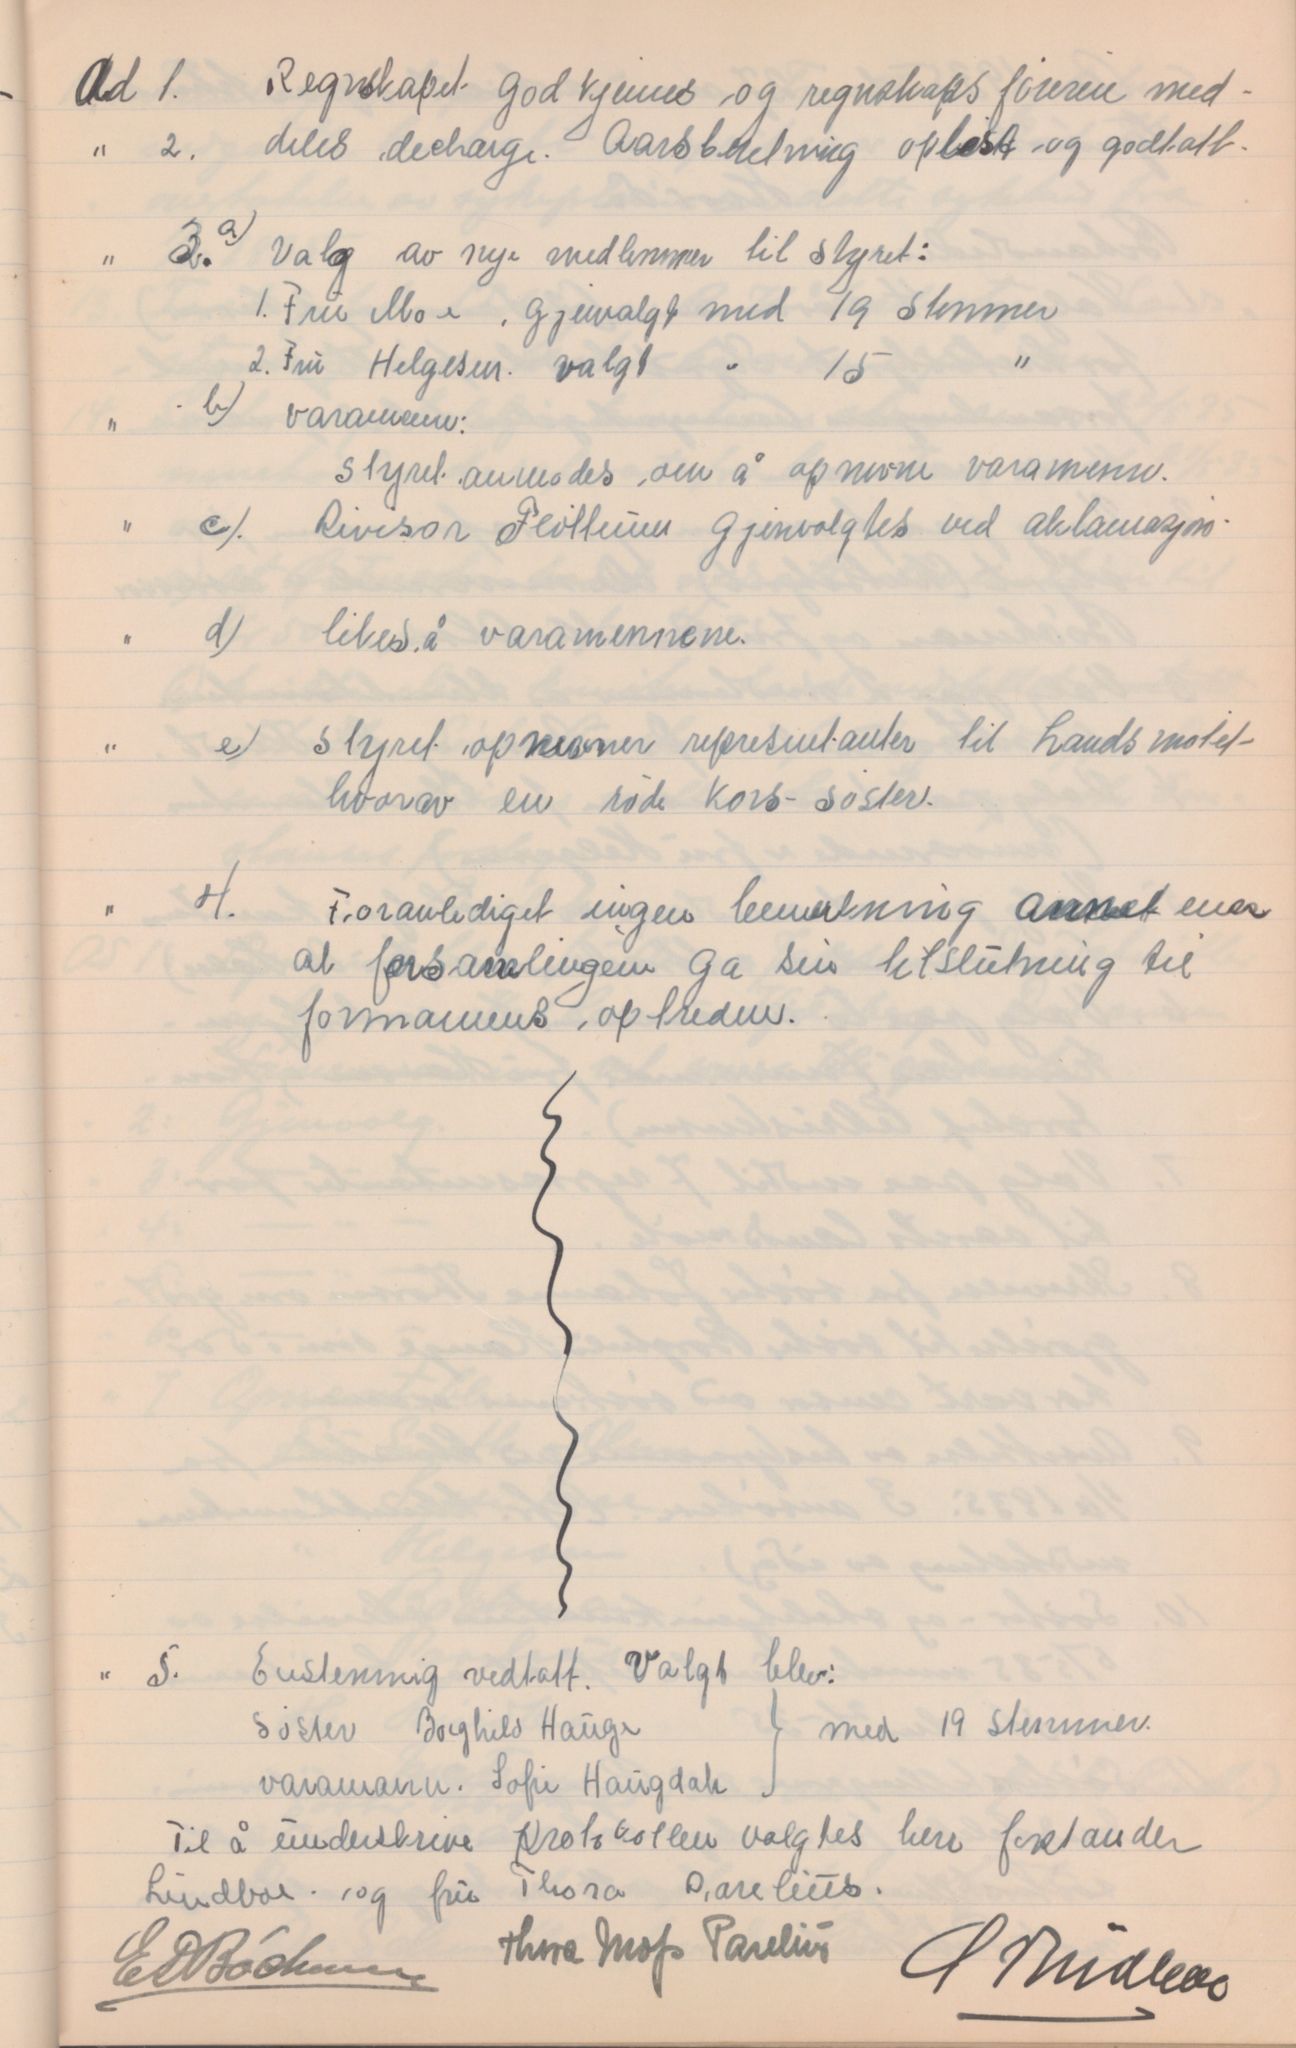 Ad 1. Regnskapet godkjennes og regnskapsføreren med-
" 2. deles decharge. Aarsberetning oplest og godtatt.
" 3. a) Valg av nye medlemmer til styret:
1. Fru Moe, gjenvalgt med 19 stemmer
2. Fru Helgesen. valgt " 15 "
" b) varamenn:
Styret anmodes om å opnevne varamenn.
" c). Revisor Flottum gjenvalgtes ved aklamasjon.
" d) likeså varamennene.
" e) Styret opnevner representanter til Landsmøtet
hvorav en røde Kors-søster.
" 4. Foranlediget ingen bemerkning annet enn
at forsamlingen ga sin tilslutning til
formannens optreden.
" 5. Enstemmig vedtatt. Valgt blev:
Søster Borghild Hauge } med 19 stemmer.
varamann. Sofie Haugdah
Til å underskrive protokollen valgtes herr forstander
Lindboe og fru Thora Parelius.
Thora Moss Parelius